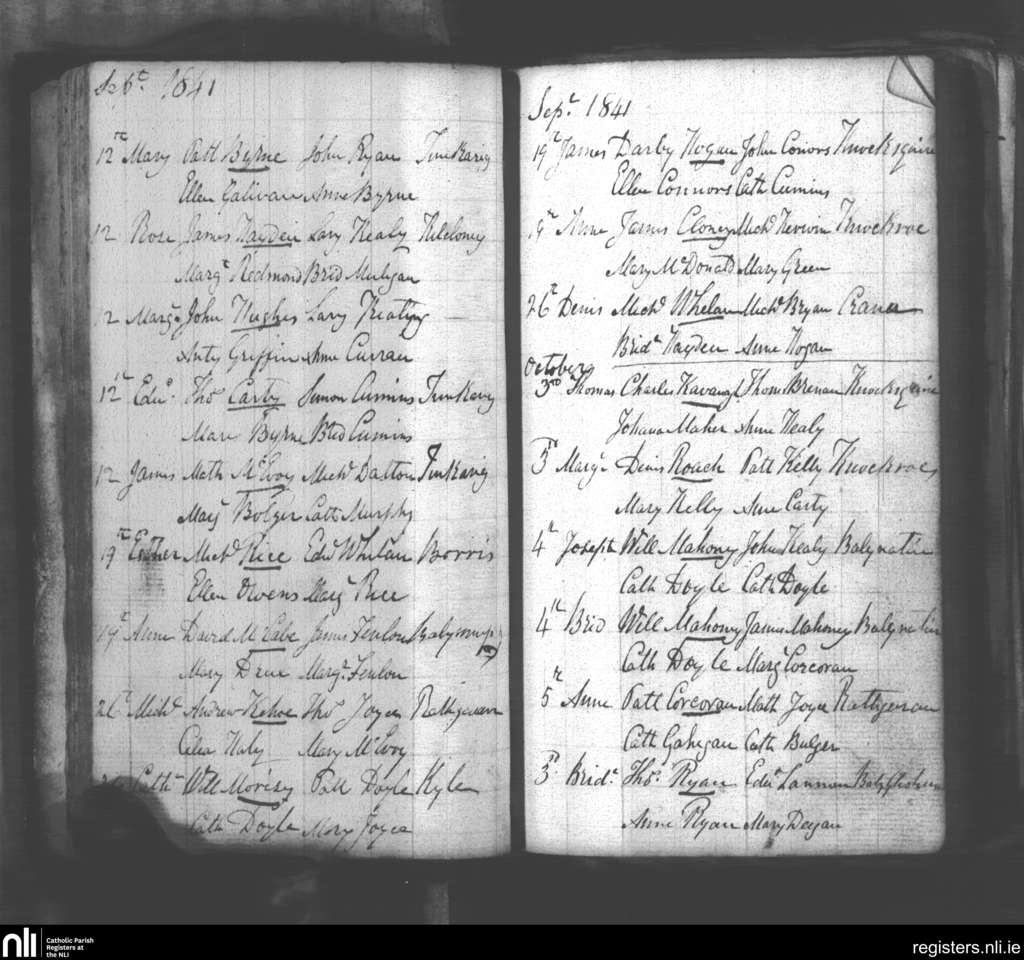 Sept. 1841
12th Mary Patt Byrne John Ryan Tinkarig
Ellen Galivan Anne Byrne
12 Rose James Hayden Lary Healy Kilcloney
Margt Redmond Brid Muligan
12 Margt John Hughes Lary Keating
Anty Griffin Anne Curran
12th Edwd Thos Carty Simon Cumins Tinkarig
Mary Byrne Brid Cumins
12 James Math McEvoy Michl Dalton Tinkarig
Mary Bolger Cath Murphy
19th Esther Michl Rice Edwd Whelan Borris
Ellen Owens Mary Rice
19th Anne David McCabe James Fenlon
Mary Drue Margt Fenlon
26th Michl Andrew Kehoe Thos Joyce Rathgeran
Celia Haly Mary McEvoy
Cath Will Morisy Patt Doyle Kyle
Cath Doyle Mary Joyce
Sept. 1841
19th James Darby Hogan John Conors Knocksquire
Ellen Connors Cath Cumins
19th Anne James Cloney Michl Knockroe
Mary McDonald Mary Green
26th Denis Michl Whelan Michl Bryan Crana
Bridt Hayden Anne Hogan
October
3rd Thomas Charles Kavangh Thoms Brenan Knocksquire
Johana Maher Anne Healy
3rd Margt Denis Roach Patt Kelly Knockroe
Mary Kelly Anne Carty
4th Joseph Will Mahony John Healy Balynatin
Cath Doyle Cath Doyle
4th Brid Will Mahony James Mahony Balynatin
Cath Doyle Margt Corcoran
5th Anne Patt Corcoran Math Joyce Rathgeran
Cath Gahegan Cath Bulger
3rd Bridt Thos Ryan Edwd Lannon
Anne Ryan Mary Deegan
nli
Catholic Parish
Registers at
the NLI
registers.nli.ie